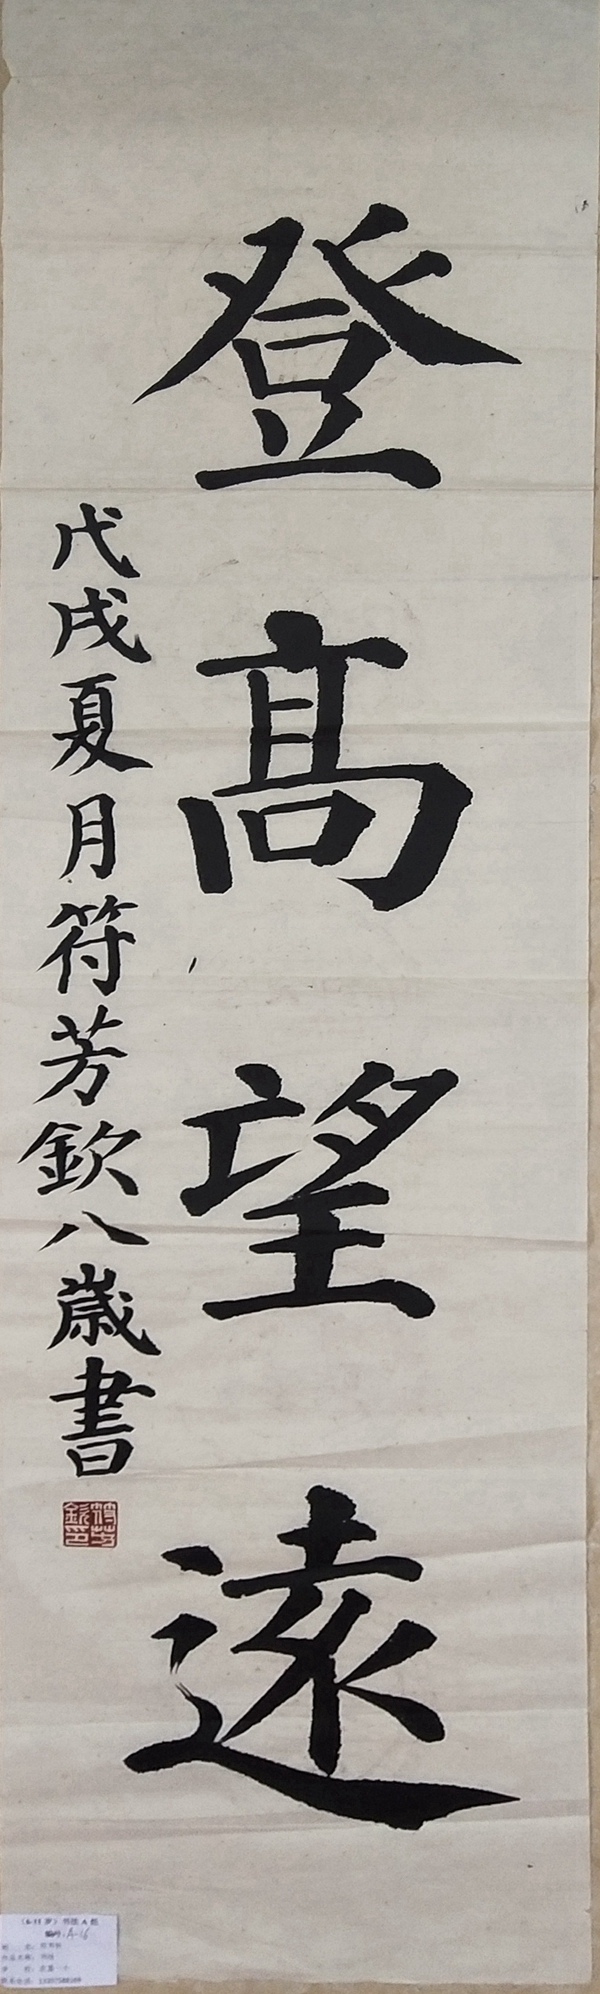 登髙望遠
戊戌夏月符芳欽八歲書
符芳欽印
(6-11岁)书法A组
编号:A-16